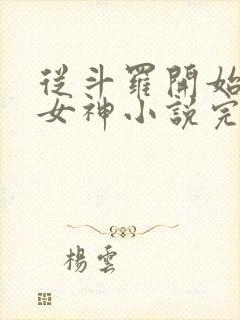 從斗羅開始
女神小說完
楊雲